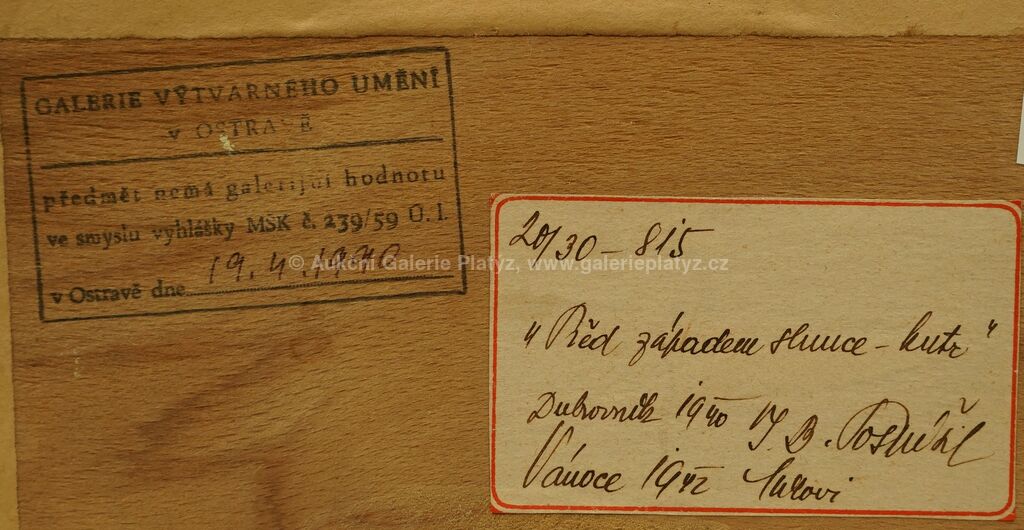 GALERIE VÝTVARNÉHO UMĚNÍ
v OSTRAVĚ
předmět nemá galerijní hodnotu
ve smyslu vyhlášky MŠK č. 239/59 Ú. l.
v Ostravě dne 19. 4.
© Aukční Galerie Platýz, www.galerieplatyz.cz
20/30 – 815
"Před západem slunce –
Dubrovník 1940 B. Pospíšil
Vánoce 1942